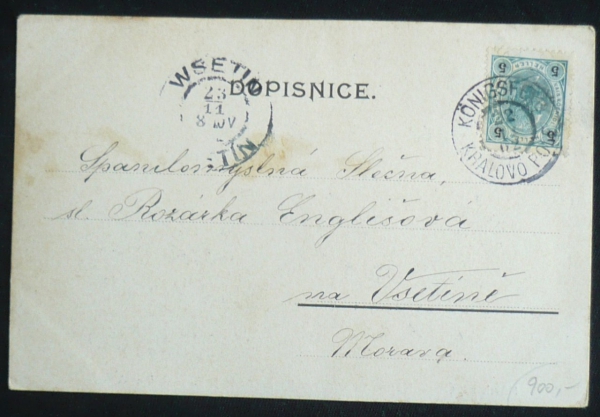 WSETIN
23
11
DOPISNICE.
5 5
KÖNIGSF
KRALOVO PO
TÍN
Spanilomyslná Slečna,
sl. Rozárka Englišová
na Vsetíně
Morava.
900,-